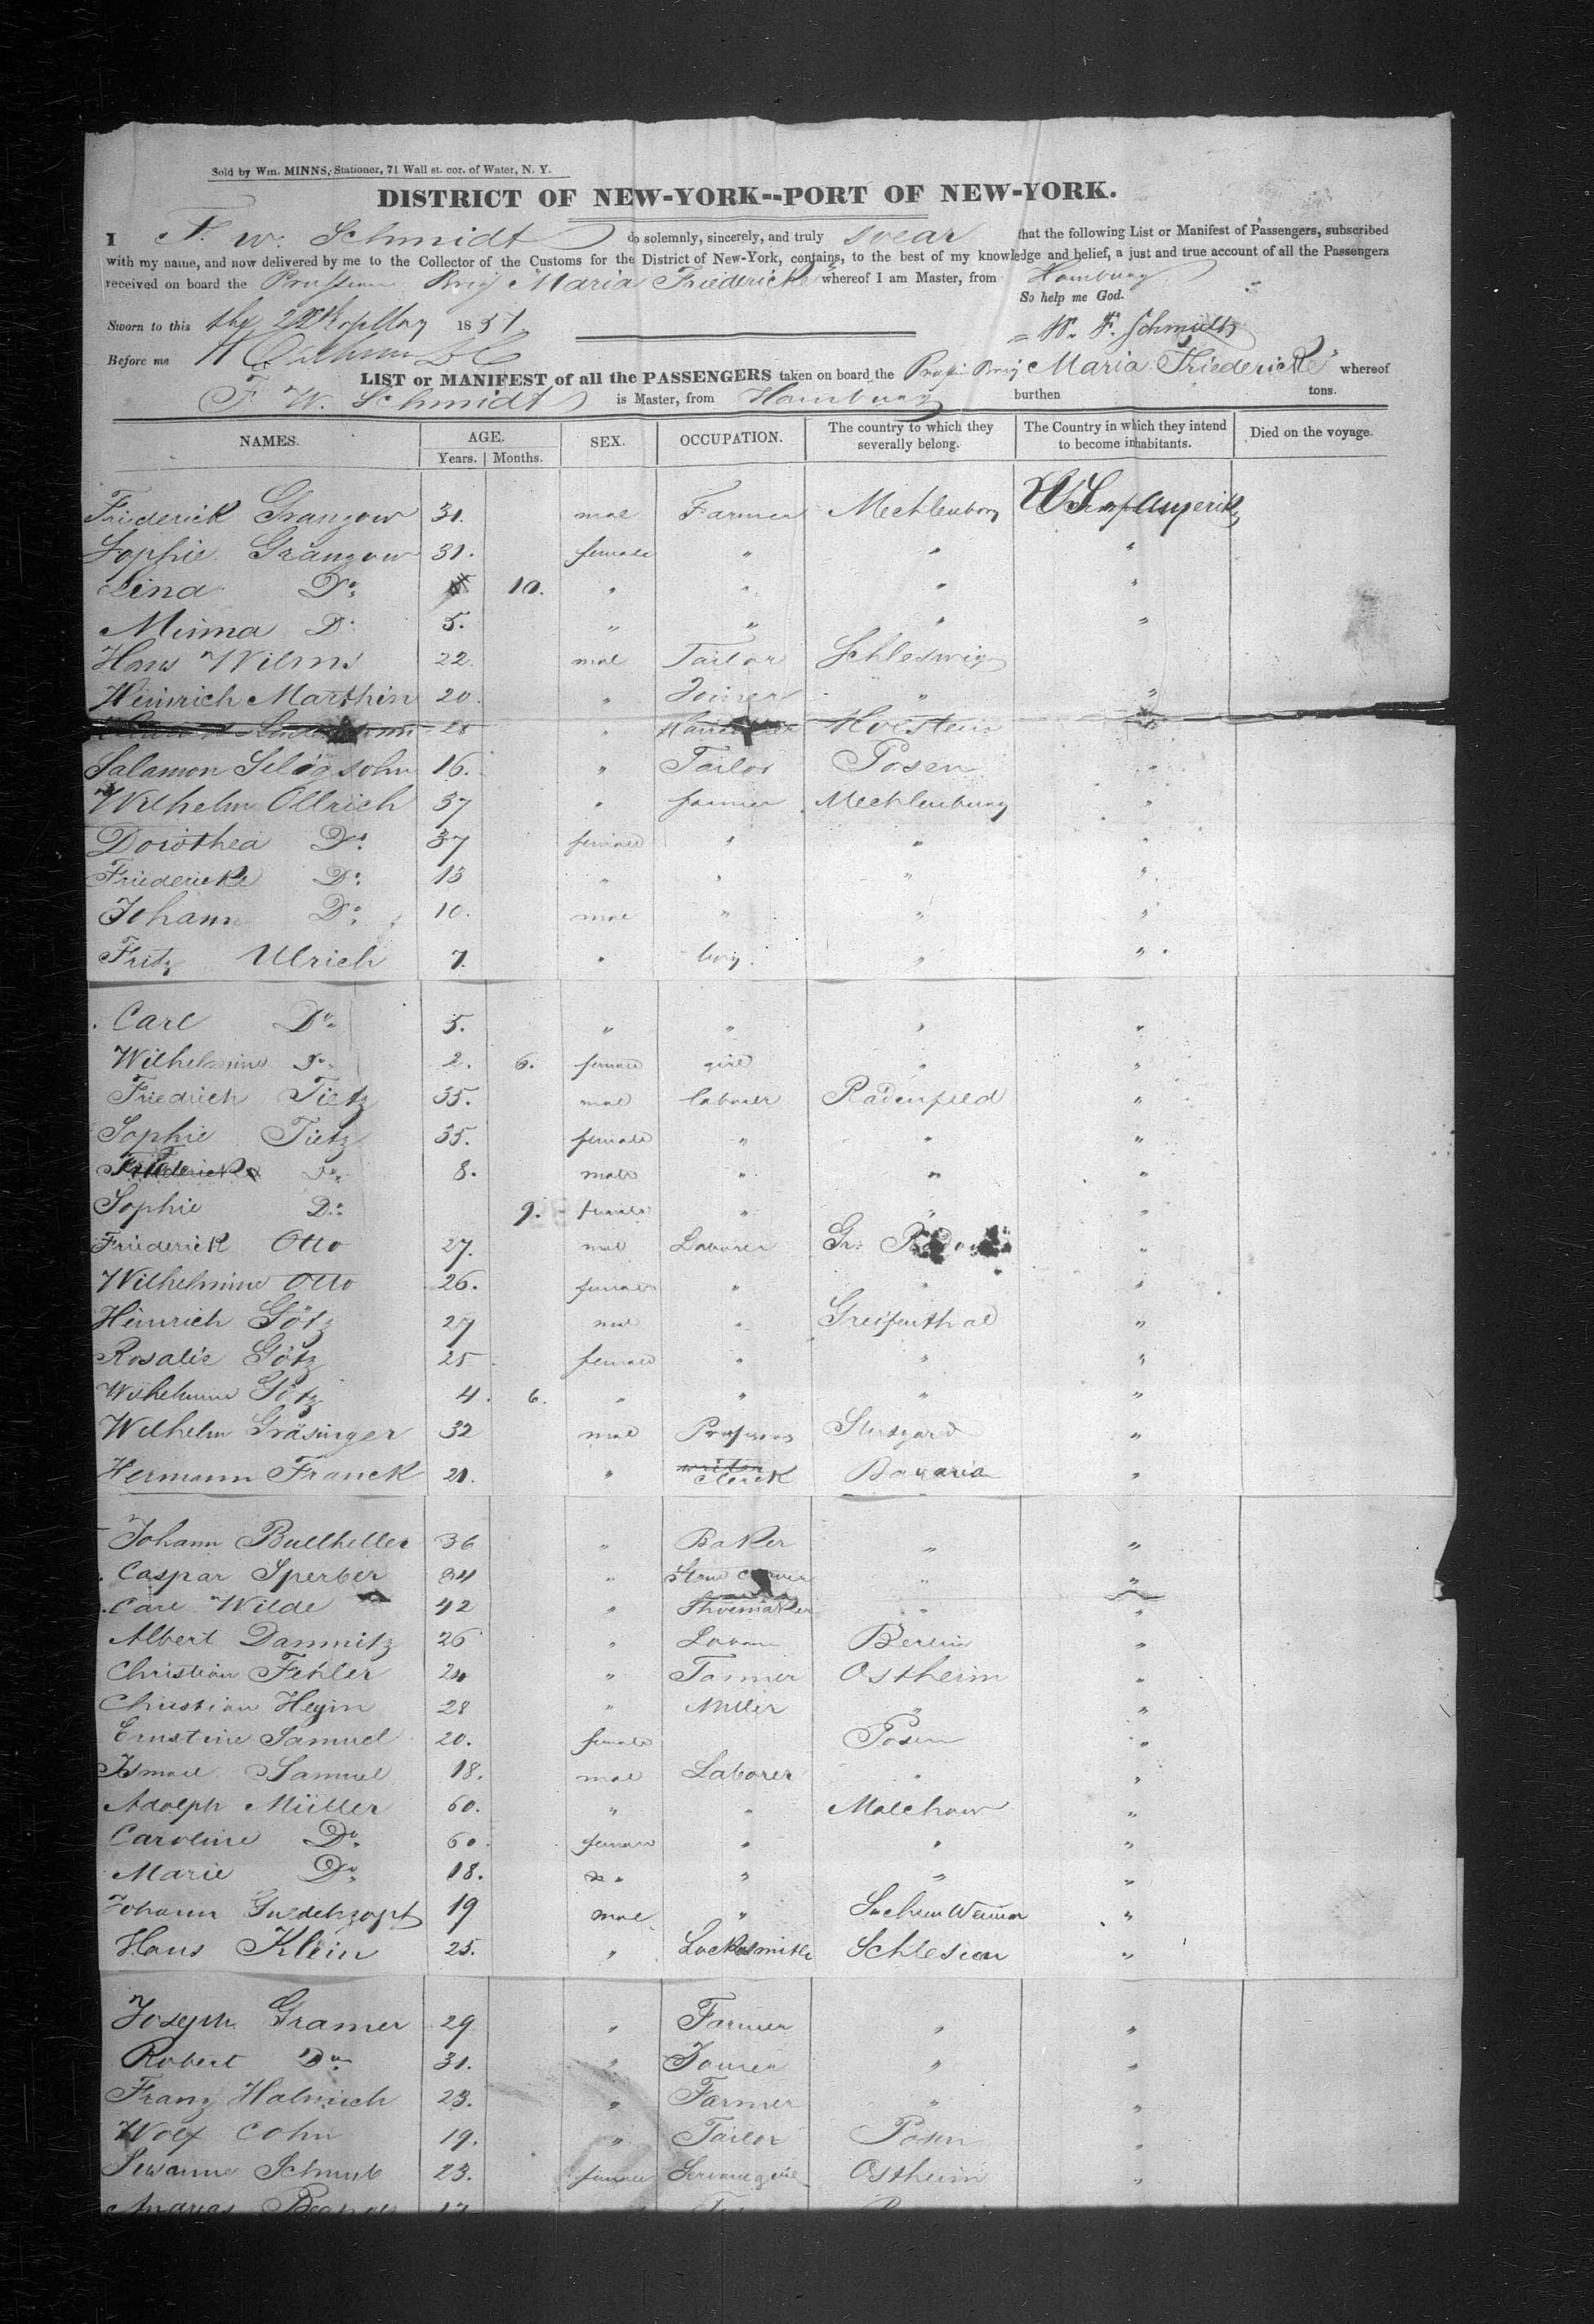 Sold by Wm. MINNS, Stationer, 71 Wall st. cor. of Water, N. Y.
DISTRICT OF NEW-YORK--PORT OF NEW-YORK.
I F. W. Schmidt do solemnly, sincerely, and truly swear that the following List or Manifest of Passengers, subscribed
with my name, and now delivered by me to the Collector of the Customs for the District of New-York, contains, to the best of my knowledge and belief, a just and true account of all the Passengers
received on board the Prussian Brig Maria Friedericke whereof I am Master, from Hamburg
So help me God.
Sworn to this the 22 of May 1851
W. F. Schmidt
Before me
LIST or MANIFEST of all the PASSENGERS taken on board the Brig Maria Friedericke whereof
F. W. Schmidt is Master, from Hamburg burthen tons.
NAMES. AGE. SEX. OCCUPATION. The country to which they severally belong. The Country in which they intend to become inhabitants. Died on the voyage.
Years. Months.
Friederick Grangow 31. mal Farmer Mecklenborg
Sophie Grangow 31. female " " "
Lina Do 10. " " " "
Minna Do 5. " " " "
Hans Wilms 22. mal Tailor Schleswig
Heinrich Marthin 20. " Joiner " "
28 " Holstein "
Salamon 16. " Tailor Posen "
Wilhelm Ollrich 37 " farmer Mecklenburg "
Dorothea Do 37 female " " "
Friedericke Do 13 " " " "
Johann Do 10. mal " " "
Fritz Ulrich 7. " boy. " "
Carl Do 5. " " " "
Wilhelmine Do 2. 6. female girl " "
Friedrich Tietz 35. mal laborer Radenfeld "
Sophie Tietz 35. female " " "
Do 8. male " " "
Sophie Do 9. female " " "
Friederick Otto 27. mal Laborer Gr. "
Wilhelmine Otto 26. female " " "
Heinrich Götz 27 mal " Greifenthal "
Rosalie Götz 25 female " " "
Wilhelmine Götz 4. 6. " " " "
Wilhelm Gräsinger 32 mal "
Hermann Franck 21. " Clerck Bavaria "
Johann Bullheller 36 " Baker " "
Caspar Sperber 34 " " "
Carl Wilde 42 " Shoemaker " "
Albert Dannnitz 26 " Berlin "
Christian Fehler 24 " Tanner Ostheim "
Christian Hegin 28 " Miller " "
Ernstine Samuel 20. female Posen "
Samuel 18. mal Laborer " "
Adolph Müller 60. " " Malchow "
Caroline Do 60. female " " "
Marie Do 18. " " " "
Johann 19 mal " Sachsen Weimar "
Hans Klein 25. " Lockesmith Schlesien "
Joseph Gramer 29 " Farmer " "
Robert Do 31. " " "
Franz Halmich 23. " Farmer " "
Wolf Cohn 19. " Tailor Posen "
Susanne 23. female Ostheim "
Andreas 17